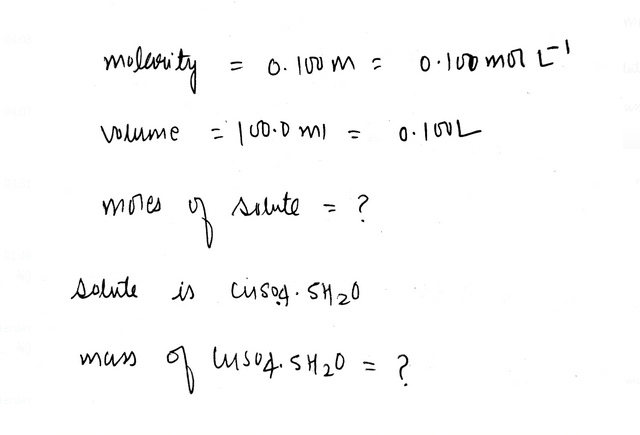 molarity = 0.100 M = 0.100 mol L⁻¹
volume = 100.0 ml = 0.100 L
moles of solute = ?
solute is CuSO4. 5H2O
mass of CuSO4. 5H2O = ?